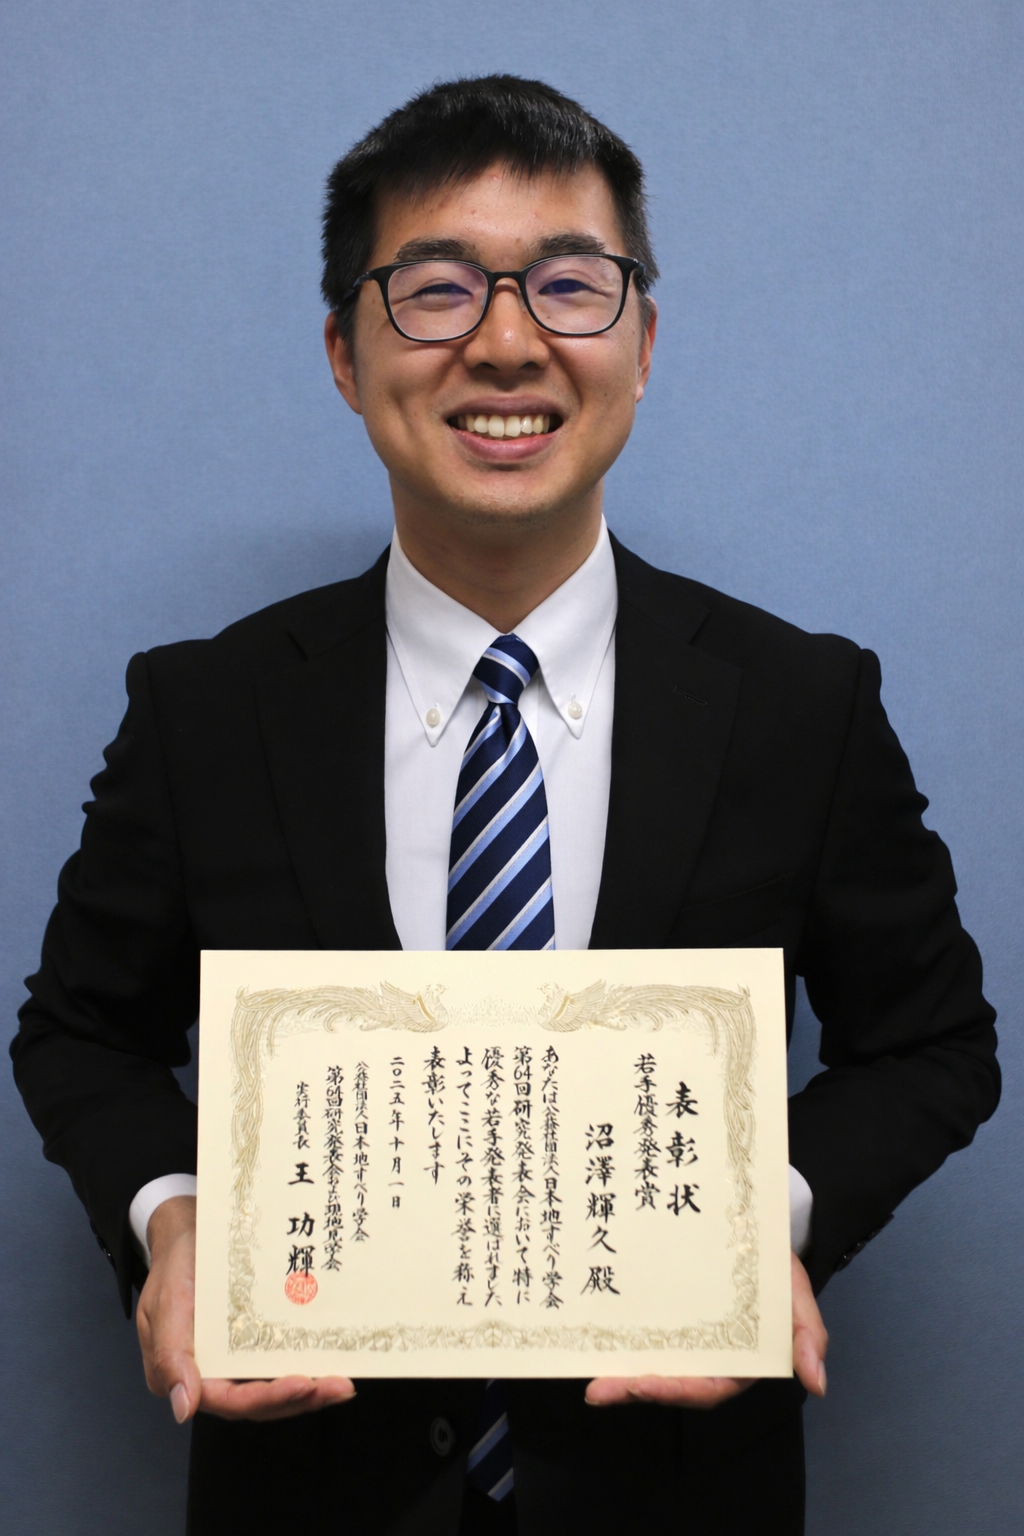 表彰状
若手優秀発表賞
沼澤輝久 殿
あなたは公益社団法人日本地すべり学会
第64回研究発表会において特に
優秀な若手発表者に選ばれました
よってここにその栄誉を称え
表彰いたします
二〇二五年十月一日
公益社団法人日本地すべり学会
第64回研究発表会および現地見学会
実行委員長 王 功輝